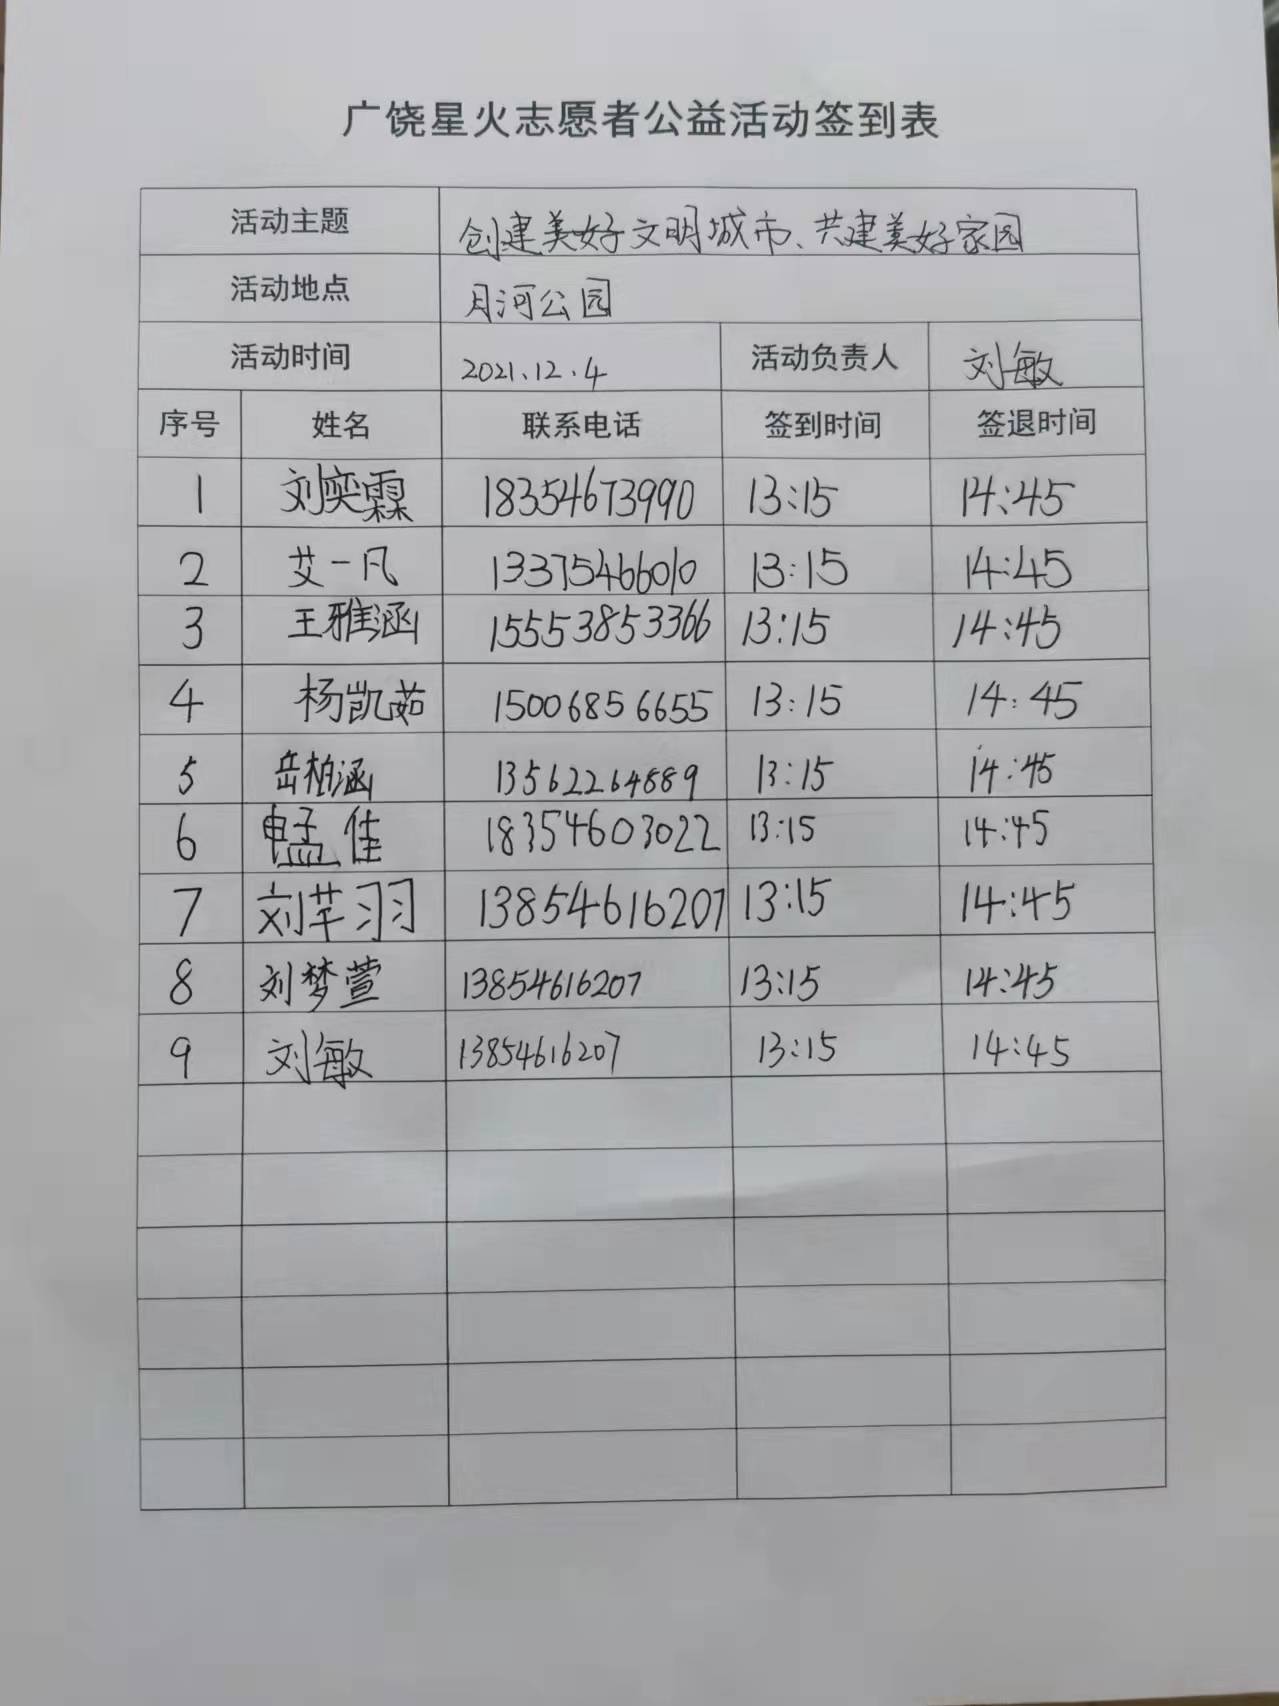 广饶星火志愿者公益活动签到表
活动主题 创建美好文明城市、共建美好家园
活动地点 月河公园
活动时间 2021.12.4 活动负责人 刘敏
序号 姓名 联系电话 签到时间 签退时间
1 刘奕霖 18354673990 13:15 14:45
2 艾一凡 13375466010 13:15 14:45
3 王雅涵 15553853366 13:15 14:45
4 杨凯茹 15006856655 13:15 14:45
5 岳柏涵 13562264889 13:15 14:45
6 佳 18354603022 13:15 14:45
7 刘芊羽 13854616207 13:15 14:45
8 刘梦萱 13854616207 13:15 14:45
9 刘敏 13854616207 13:15 14:45